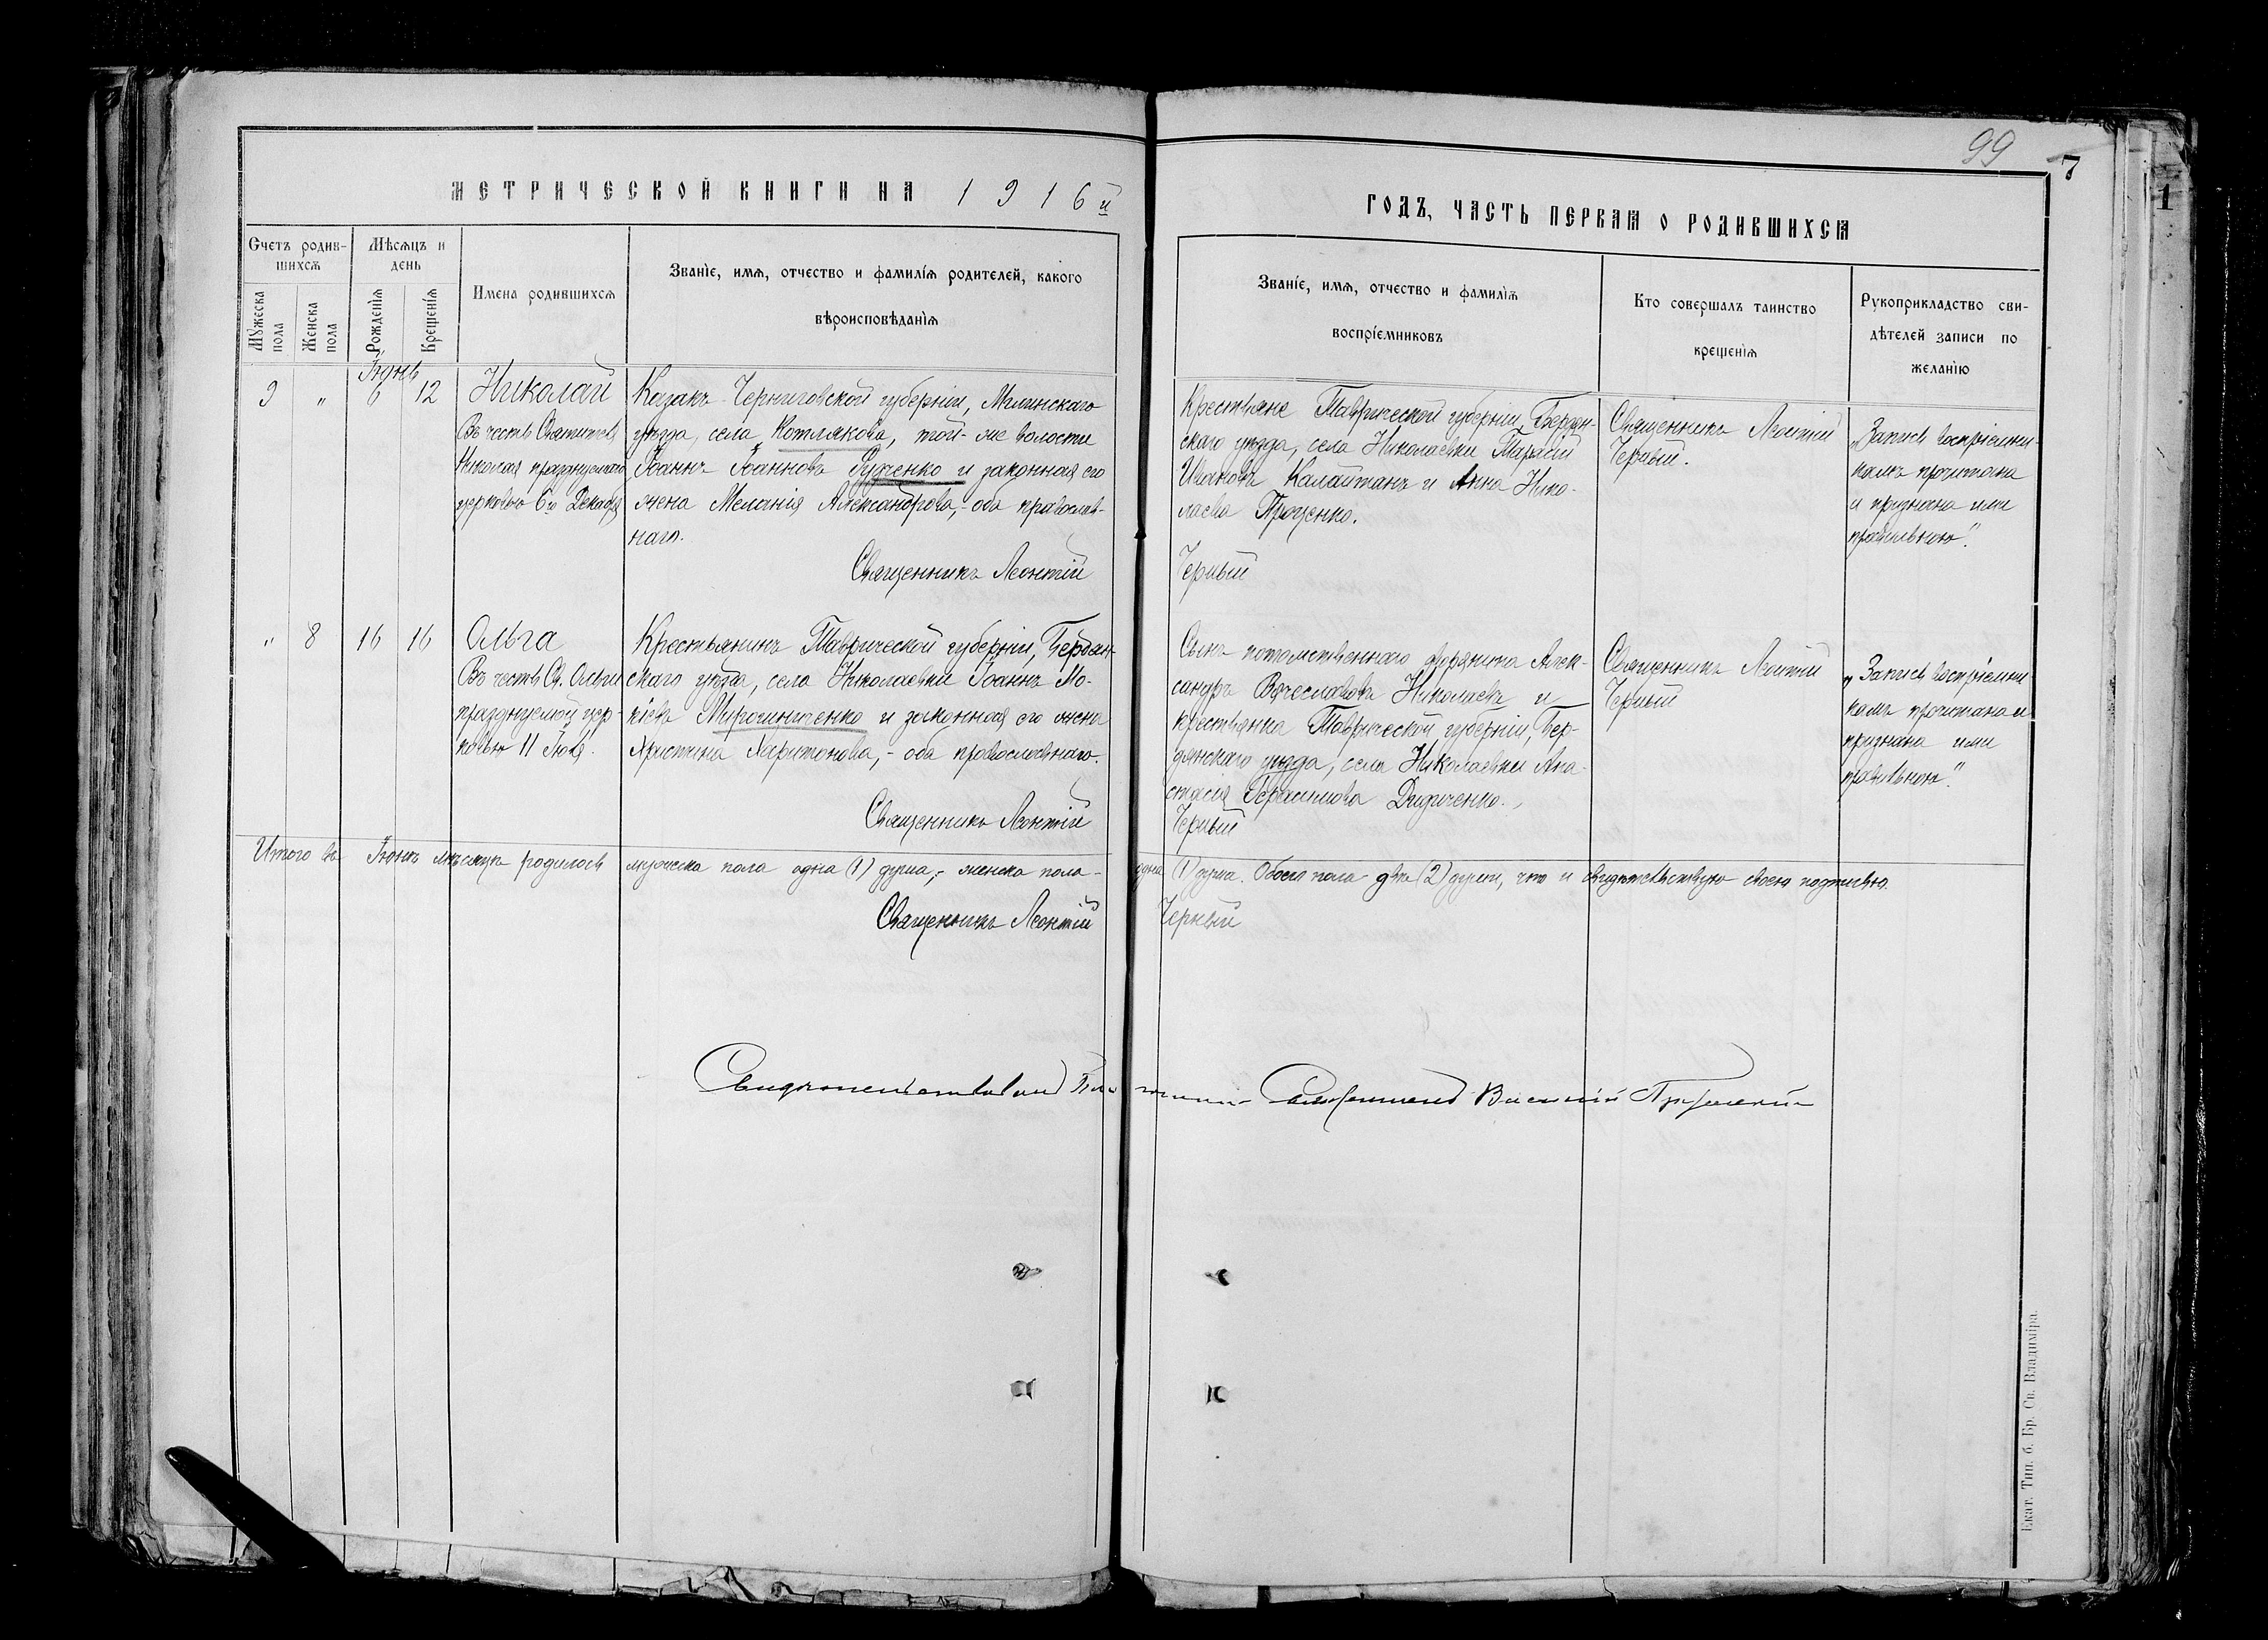 99
7
1
МЕТРИЧЕСКОЙ КНИГИ НА 1916й
ГОДЪ, ЧАСТЬ ПЕРВАЯ О РОДИВШИХСЯ
Счетъ родив-
шихся
Мѣсяцъ и
день
Мужеска
пола
Женска
пола
Рожденія
Крещенія
Имена родившихся
Званіе, имя, отчество и фамилія родителей, какого
вѣроисповѣданія
Званіе, имя, отчество и фамилія
воспріемниковъ
Кто совершалъ таинство
крещенія
Рукоприкладство сви-
дѣтелей записи по
желанію
Іюнь
9 " 6 12
Николай
Въ честь Святителя
Николая празднуемаго
церковью 6го Декабря
Казакъ Черниговской губерніи, Мглинскаго
уѣзда, села Котлякова, той-же волости
Іоаннъ Іоанновъ Руденко и законная его
жена Меланія Александрова,- оба православ-
наго.
Священникъ Леонтій
Крестьяне Таврической губерніи, Бердян-
скаго уѣзда, села Николаевки Тарасій
Ивановъ Калайтанъ и Анна Нико-
лаева Проценко.
Черный
Священникъ Леонтій
Черный.
„Запись воспріемни-
камъ прочитана
и признана ими
правильною".
" 8 16 16
Ольга
Въ честь Св. Ольги
празднуемой цер-
ковью 11 Іюля.
Крестьянинъ Таврической губерніи, Бердян-
скаго уѣзда, села Николаевки Іоаннъ Мо-
кіевъ Мирошниченко и законная его жена
Христина Харитонова,- оба православнаго.
Священникъ Леонтій
Сынъ потомственнаго дворянина Алек-
сандръ Вячеславовъ Николаевъ и
крестьянка Таврической губерніи, Бер-
дянскаго уѣзда, села Николаевки Ана-
стасія Герасимова Дидиченко.
Черный
Священникъ Леонтій
Черный
„Запись воспріемни
камъ прочитана и
признана ими
правильною".
Итого въ Іюнѣ мѣсяцѣ родилось мужеска пола одна (1) душа,- женска пола- одна (1) душа. Обоего пола двѣ (2) души, что и свидѣтельствую своею подписью.
Священникъ Леонтій Черный
Свидѣтельствовалъ Священникъ Василій
Екат. Тип. б. Бр. Св. Владиміра.